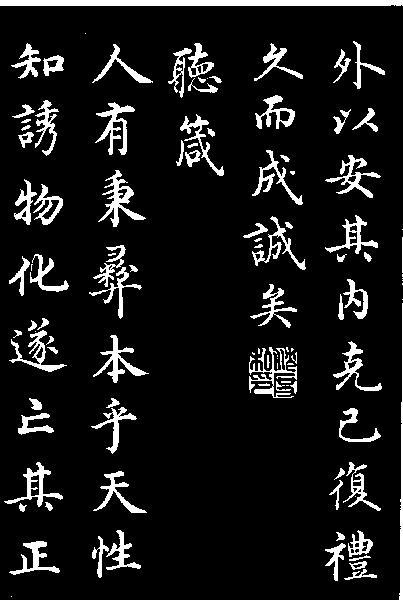 外以安其内克己復禮
久而成誠矣
聽箴
人有秉彝本乎天性
知誘物化遂亡其正